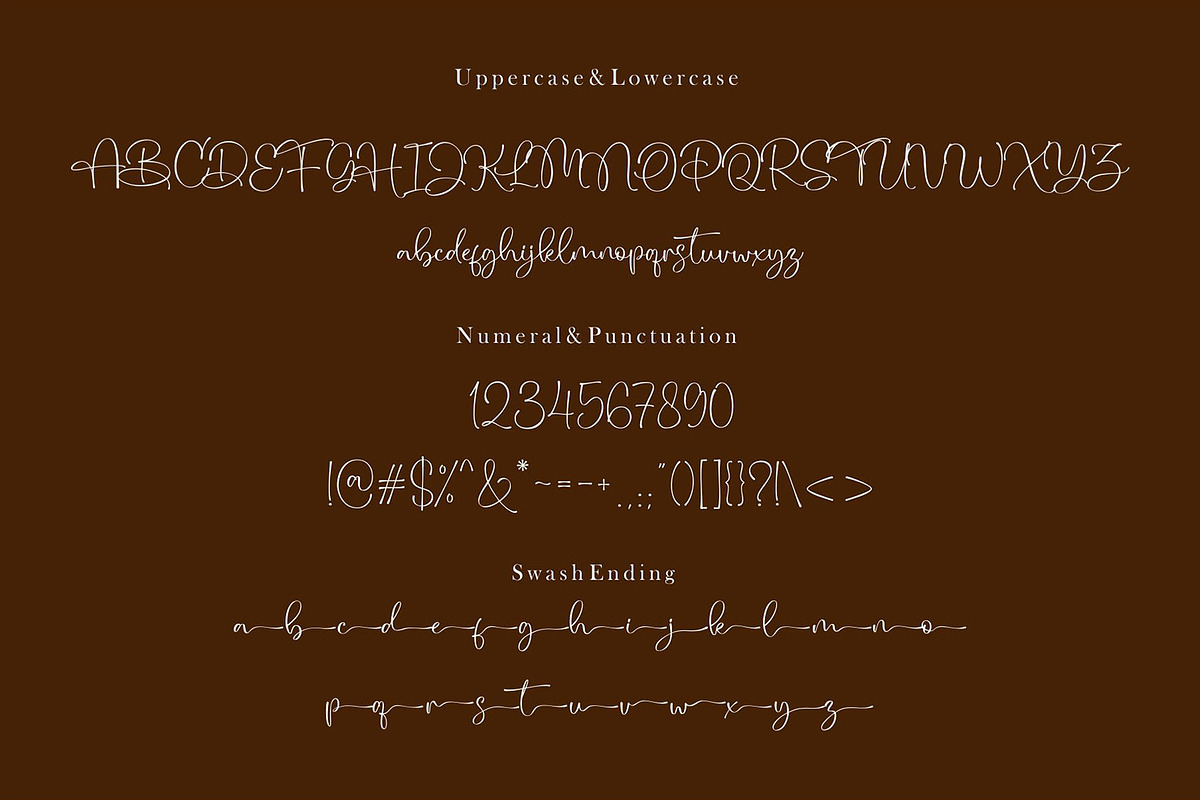 Uppercase&Lowercase
ABCDEFGHIJKLMNOPQRSTUVWXYZ
abcdefghijklmnopqrstuvwxyz
Numeral&Punctuation
1234567890
!@#$%^&*~=-+.,:;"()[]{}?!\<>
SwashEnding
abcdefghijklmno
pqrstuvwxyz